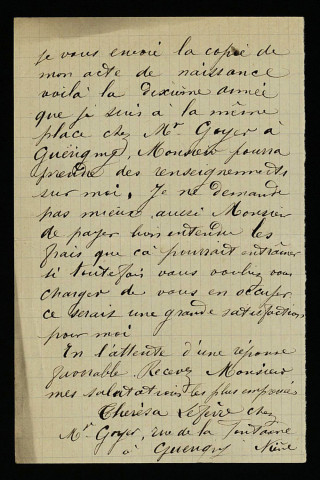 je vous envoi la copie de
mon acte de naissance
voilà la dixième année
que je suis à la même
place chez Mr Goyer à
Guérigny, Monsieur pourra
prendre des renseignements
sur moi. Je ne demande
pas mieux aussi Monsieur
de payer bien entendu les
frais que çà pourrait entraîner
si toutefois vous voulez vous
charger de vous en occuper
ce serais une grande satisfaction
pour moi
En l'attente d'une réponse
favorable Recevez Monsieur
mes salutations les plus empressées
Thérésa chez
Mr Goyer, rue de la Fontaine
à Guerigny Nièvre